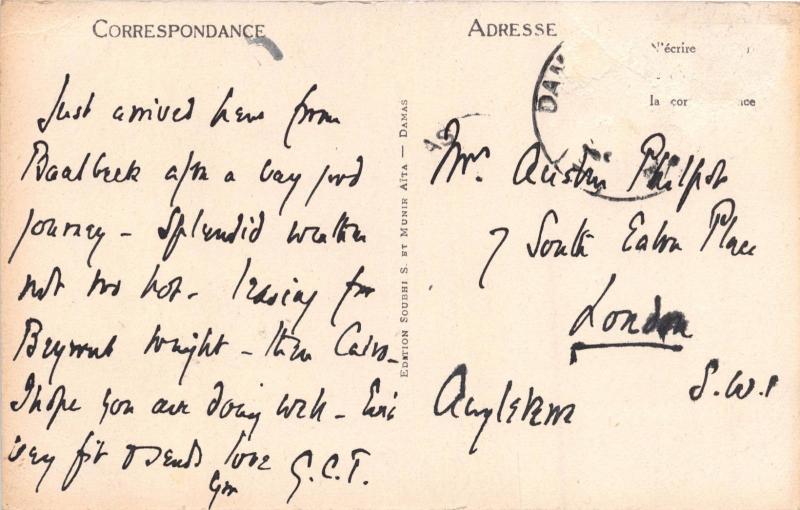 CORRESPONDANCE
Just arrived here from
Baalbeck after a very good
journey - Splendid weather
not too hot - leaving for
Beyrout tonight - then Cairo -
I hope you are doing well - Eric
very fit & sends love G.C.T.
EDITION SOUBHI S. ET MUNIR AÏTA — DAMAS
ADRESSE
N'écrire
la cor nce
DAM
Mrs. Austin Philpot
7 South Eaton Place
London
S.W.1
Angleterre